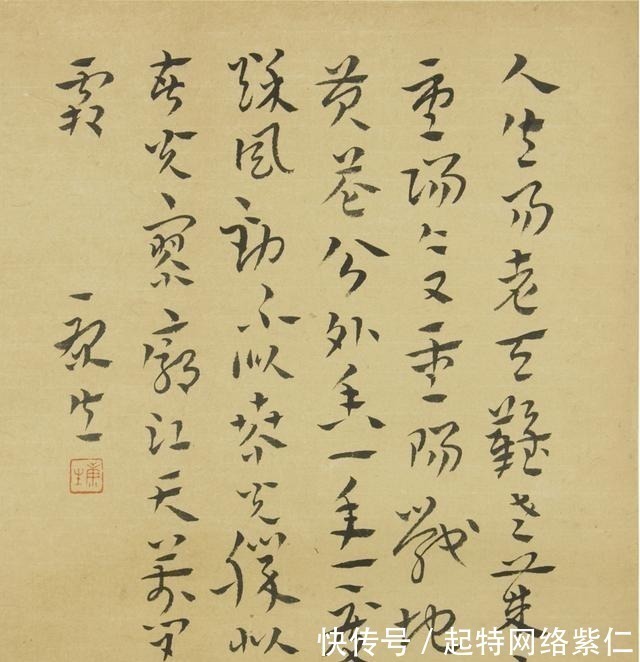 人生易老天難老歲
重陽今又重陽戰地
黃花分外香一年一度
秋風勁不似春光勝似
春光寥廓江天萬里
霜
康生
康生
快传号／起特网络紫仁